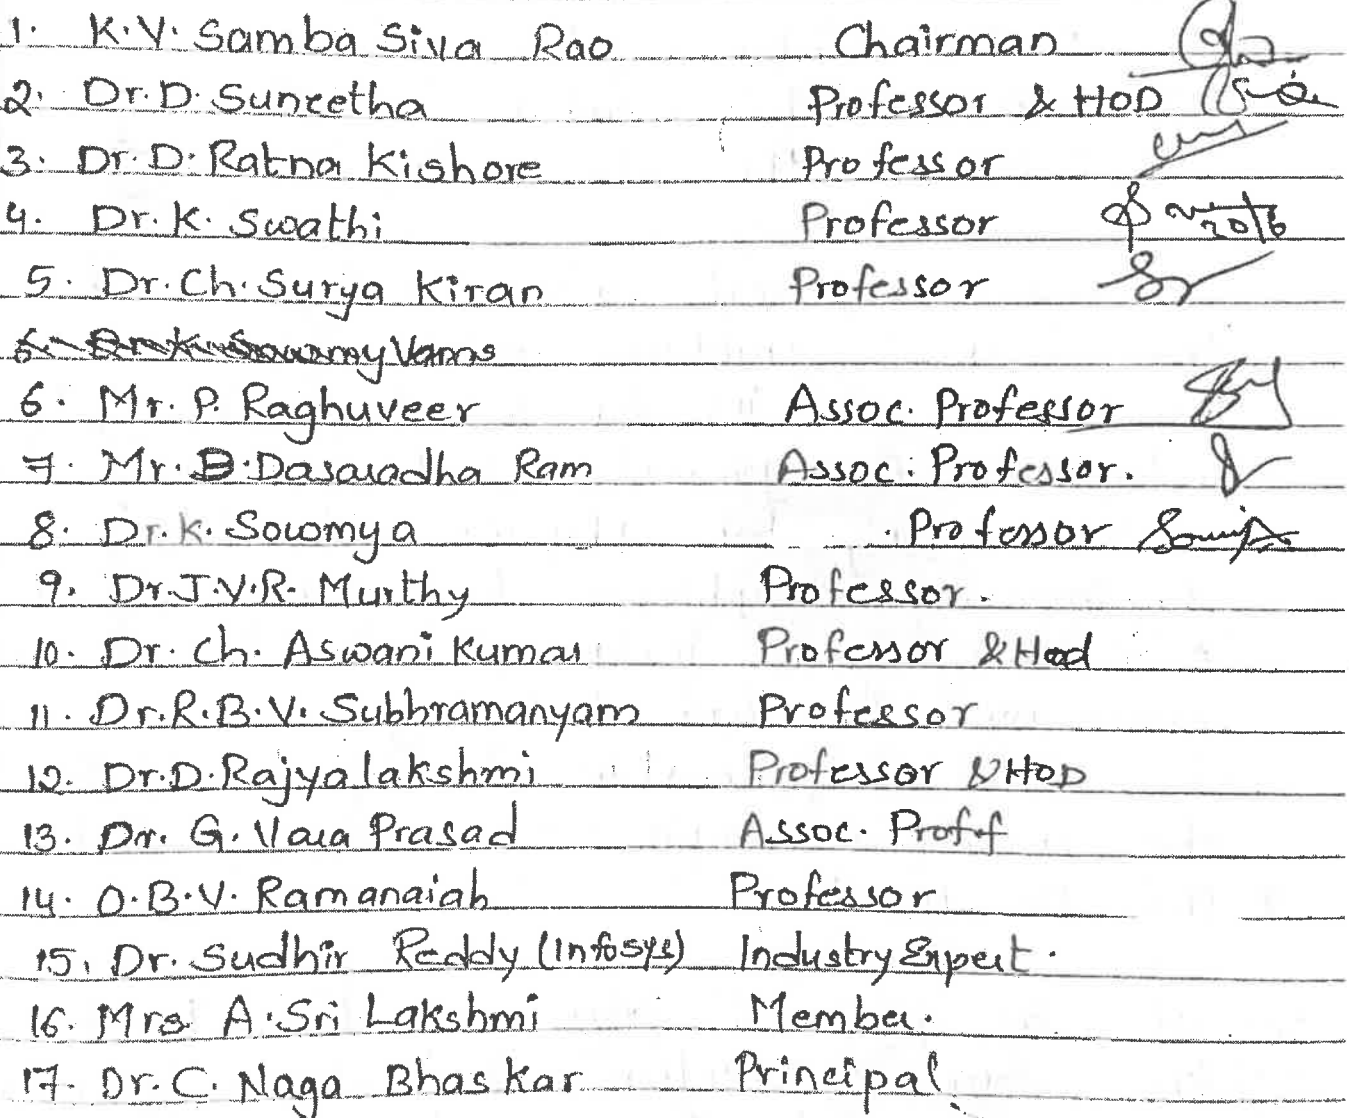 1. K.V. Samba Siva Rao Chairman
2. Dr. D. Suneetha Professor & HOD
3. Dr. D. Ratna Kishore Professor
4. Dr. K. Swathi Professor 20/6
5. Dr. Ch. Surya Kiran Professor
Vams
6. Mr. P. Raghuveer Assoc. Professor
7. Mr. B. Dasaradha Ram Assoc. Professor.
8. Dr. K. Sowmya Professor
9. Dr. J.V.R. Murthy Professor.
10. Dr. Ch. Aswani Kumar Professor & Hod
11. Dr. R.B.V. Subhramanyam Professor
12. Dr. D. Rajyalakshmi Professor & HOD
13. Dr. G. Vara Prasad Assoc. Proff
14. O.B.V. Ramanaiah Professor
15. Dr. Sudhir Reddy (Infosys) Industry Expert.
16. Mrs. A. Sri Lakshmi Member.
17. Dr. C. Naga Bhaskar Principal